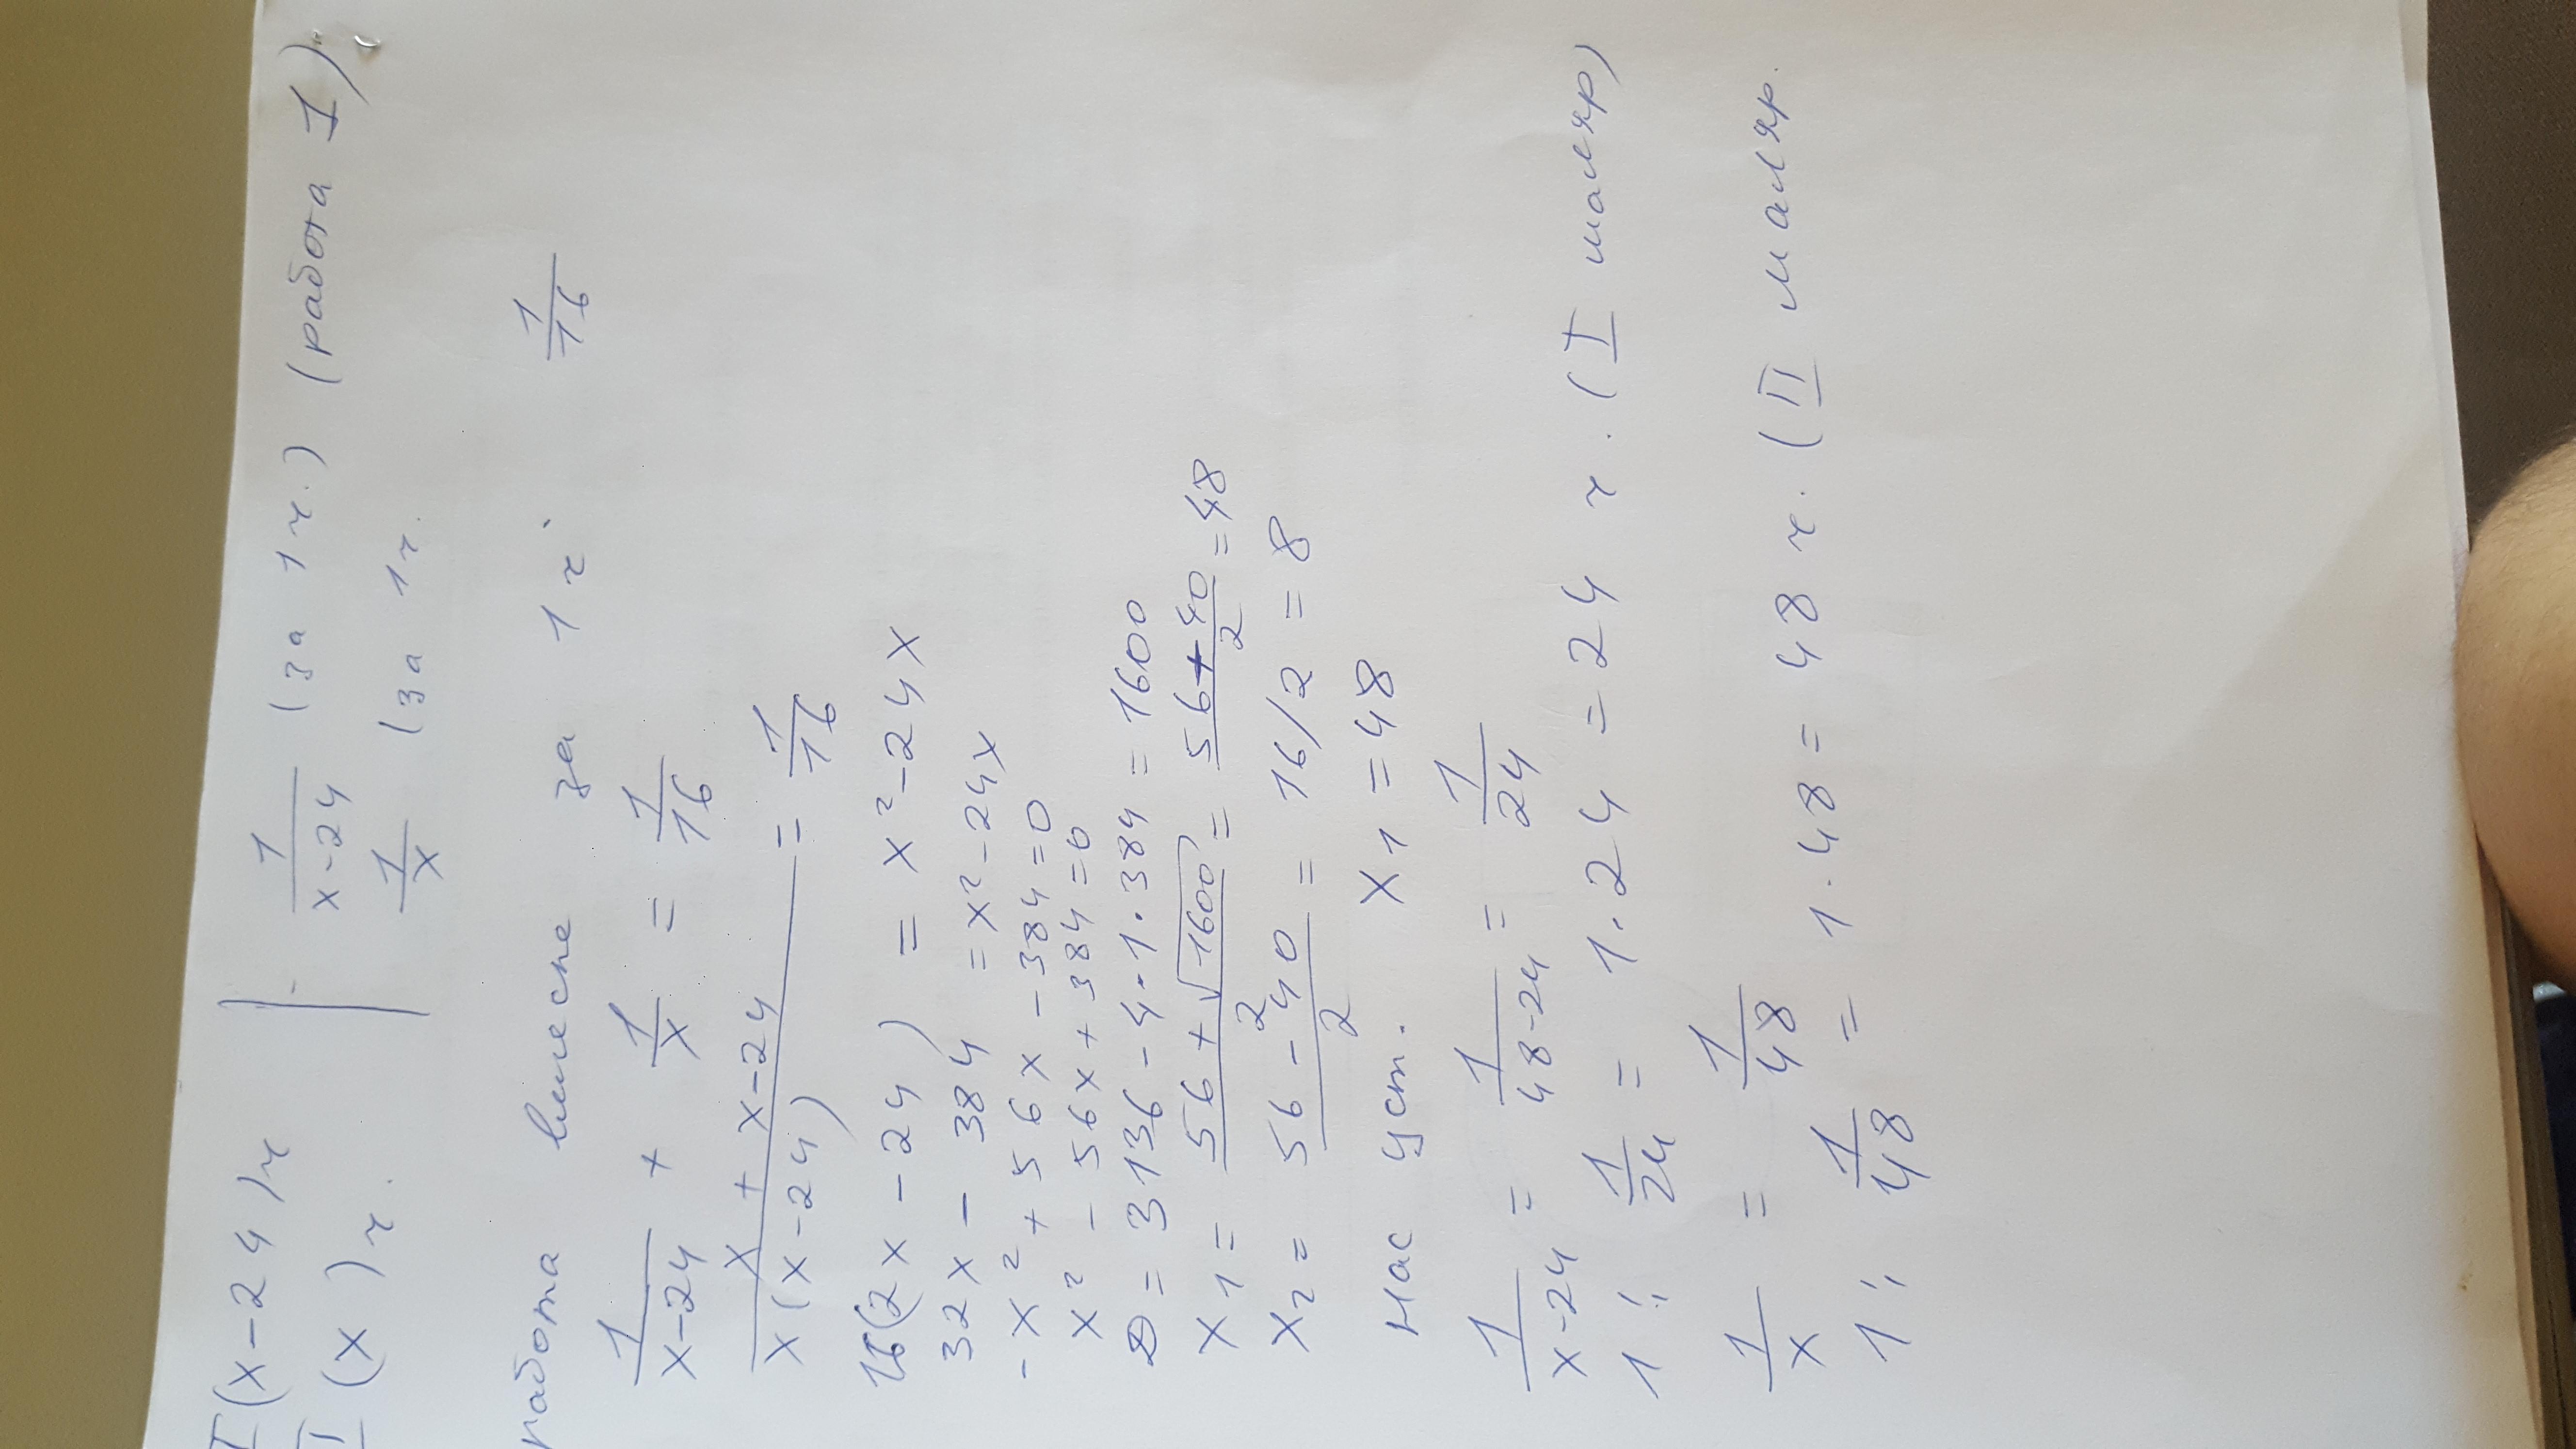 I (x-24) ч | 1/(x-24) (за 1 ч.) (работа 1).
II (x) ч. | 1/x (за 1 ч.
работа вместе за 1 ч. 1/16
1/(x-24) + 1/x = 1/16
(x + x-24)/(x(x-24)) = 1/16
16(2x-24) = x²-24x
32x - 384 = x²-24x
-x² + 56x - 384 = 0
x² - 56x + 384 = 0
D = 3136 - 4·1·384 = 1600
x1 = (56 + √1600)/2 = (56+40)/2 = 48
x2 = (56 - 40)/2 = 16/2 = 8
Нас уст. x1 = 48
1/(x-24) = 1/(48-24) = 1/24
1 : 1/24 = 1·24 = 24 ч. (I маляр)
1/x = 1/48
1 : 1/48 = 1·48 = 48 ч. (II маляр.